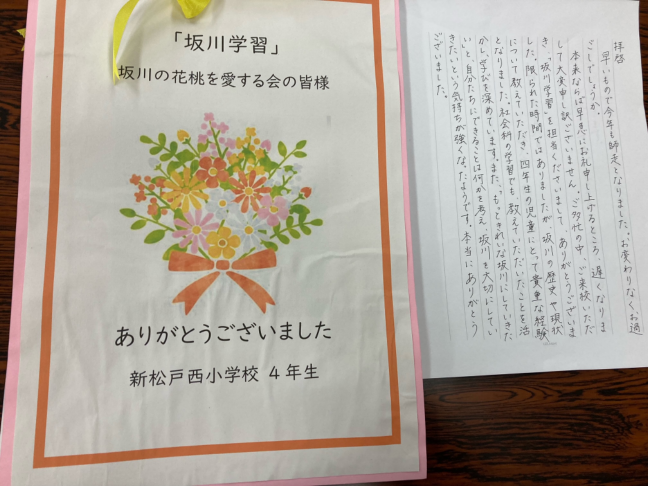 「坂川学習」
坂川の花桃を愛する会の皆様
ありがとうございました
新松戸西小学校 4年生
拝啓
早いもので今年も師走となりました。お変わりなくお過
ごしでしょうか。
本来ならば早急にお礼申し上げるところ、遅くなりま
して大変申し訳ございません。ご多忙の中、ご来校いただ
き、「坂川学習」を担当くださいまして、ありがとうございま
した。限られた時間ではありましたが、坂川の歴史や現状
について教えていただき、四年生の児童にとって貴重な経験
となりました。社会科の学習でも、教えていただいたことを活
かし、学びを深めています。また、“もっときれいな坂川にしていきた
い”と、自分たちにできることは何かを考え、坂川を大切にしてい
きたいという気持ちが強くなったようです。本当にありがとう
ございました。